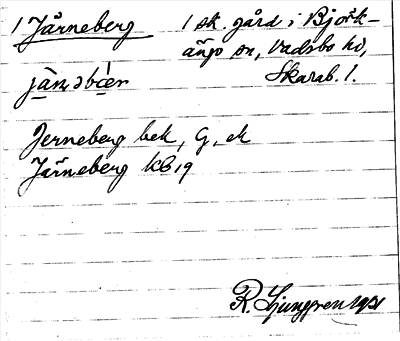 1 Järneberg 1 sk. gård i Björk-
ängs sn, Vadsbo hd,
Skarab. l.
Jerneberg bek, G, ek
Järneberg KB 19
R. Ljunggren 1931